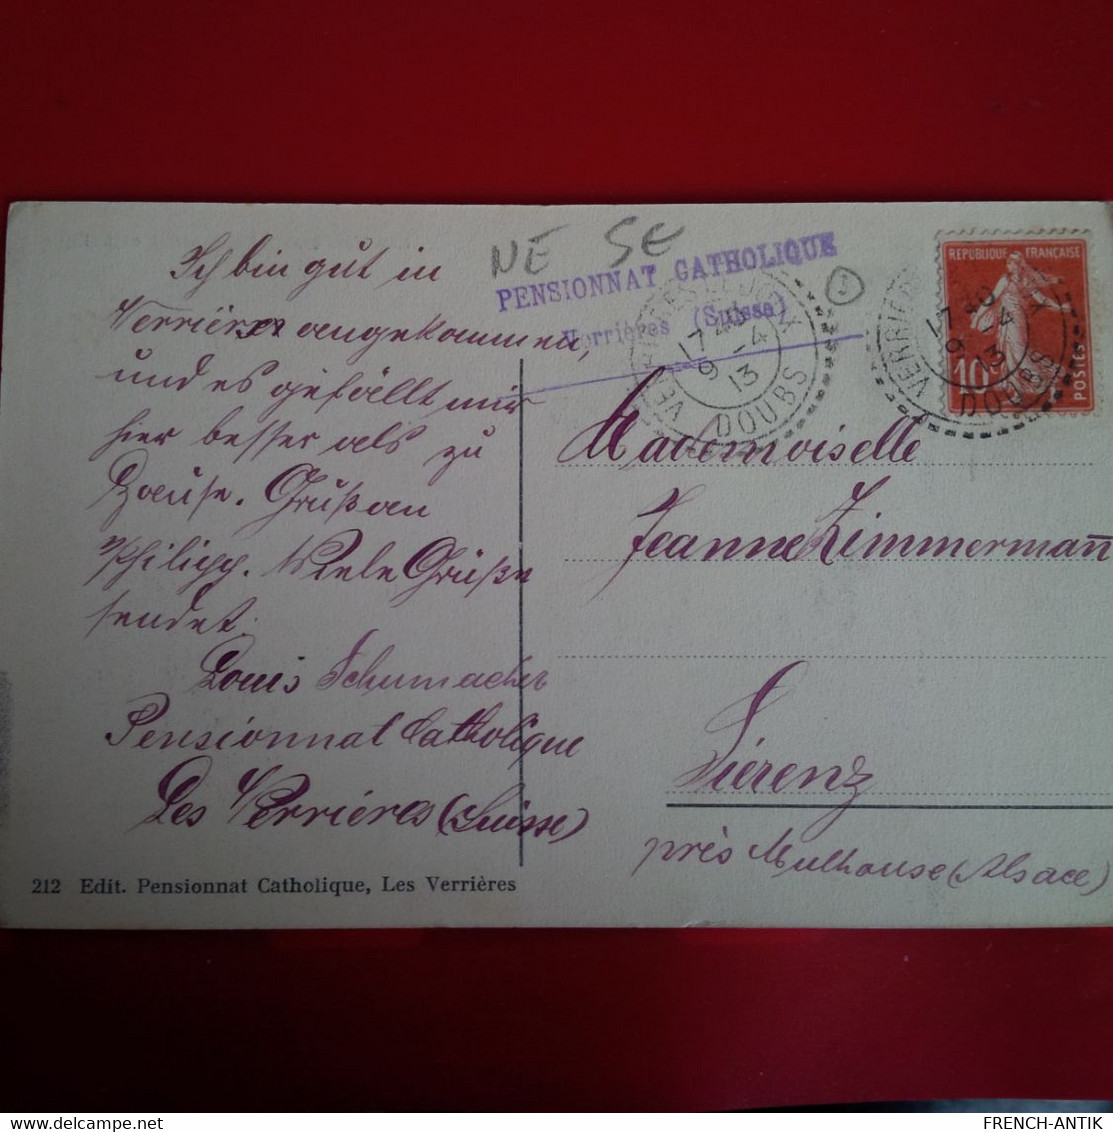 Ich bin gut in
Verrières angekommen,
und es gefällt mir
hier besser als zu
Hause. Gruß an
Philipp. Viele Grüße
sendet
Louis Schumacher
Pensionnat Catholique
Les Verrières (Suisse)
212 Edit. Pensionnat Catholique, Les Verrières
NE SE
PENSIONNAT CATHOLIQUE
Verrières (Suisse)
17 40
9 -4
13
DOUBS
REPUBLIQUE FRANÇAISE
10c
POSTES
VERRIÈRES
17 40
9 -4
13
DOUBS
Mademoiselle
Jeanne Zimmermañ
Sierenz
près Mulhouse (Alsace)
FRENCH-ANTIK
www.delcampe.net